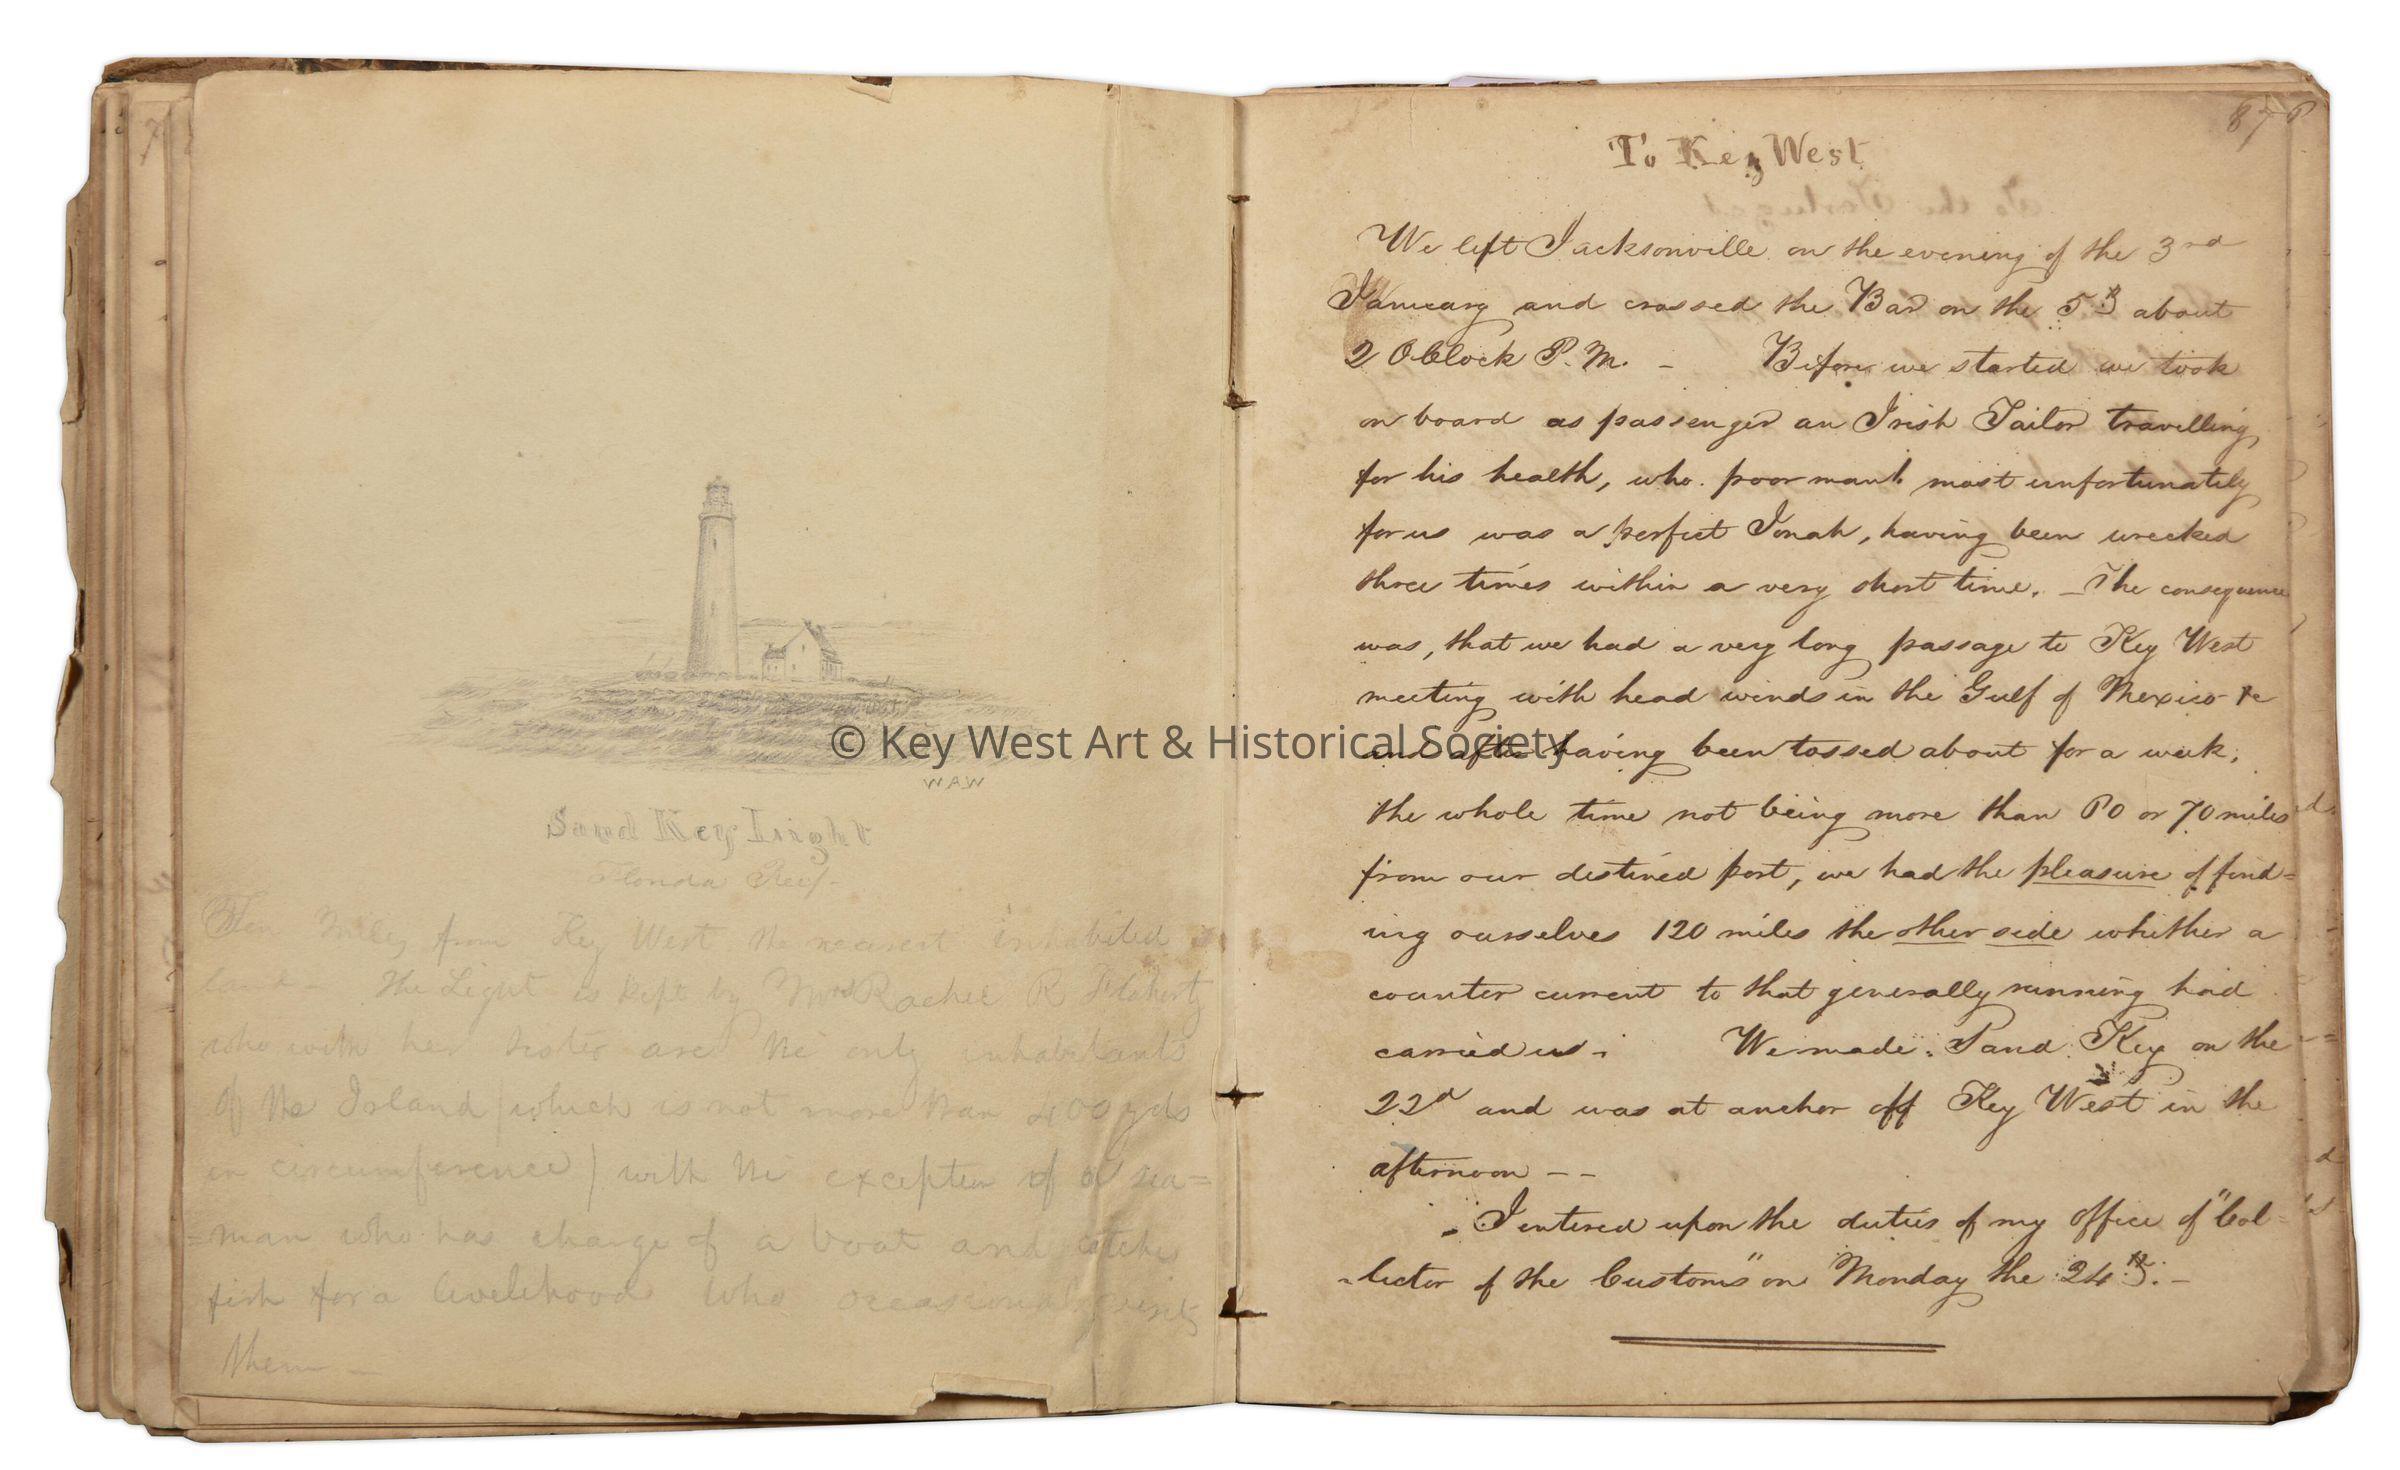 WAW
Sand Key Light
Florida Reef.
Ten Miles from Key West the nearest inhabited
land - The Light is kept by Mrs Rachel R Flaherty
who with her sister are the only inhabitants
of the Island (which is not more than 400 yds
in circumference) with the exception of a sea=
=man who has charge of a boat and catches
fish for a livelihood who occasionally visits
them -
To Key West
We left Jacksonville on the evening of the 3rd
January and crossed the Bar on the 5th about
2 OClock P.M. - Before we started we took
on board as passenger an Irish Tailor travelling,
for his health, who poor man! most unfortunately
for us was a perfect Jonah, having been wrecked
three times within a very short time. - The consequence
was, that we had a very long passage to Key West
meeting with head winds in the Gulf of Mexico &c
and after having been tossed about for a week,
the whole time not being more than 60 or 70 miles
from our destined port, we had the pleasure of find=
ing ourselves 120 miles the other side whither a
counter current to that generally running had
carried us. We made Sand Key on the
22d and was at anchor off Key West in the
afternoon - -
- I entered upon the duties of my office of "Col=
-lector of the Customs" on Monday the 24th. -
© Key West Art & Historical Society